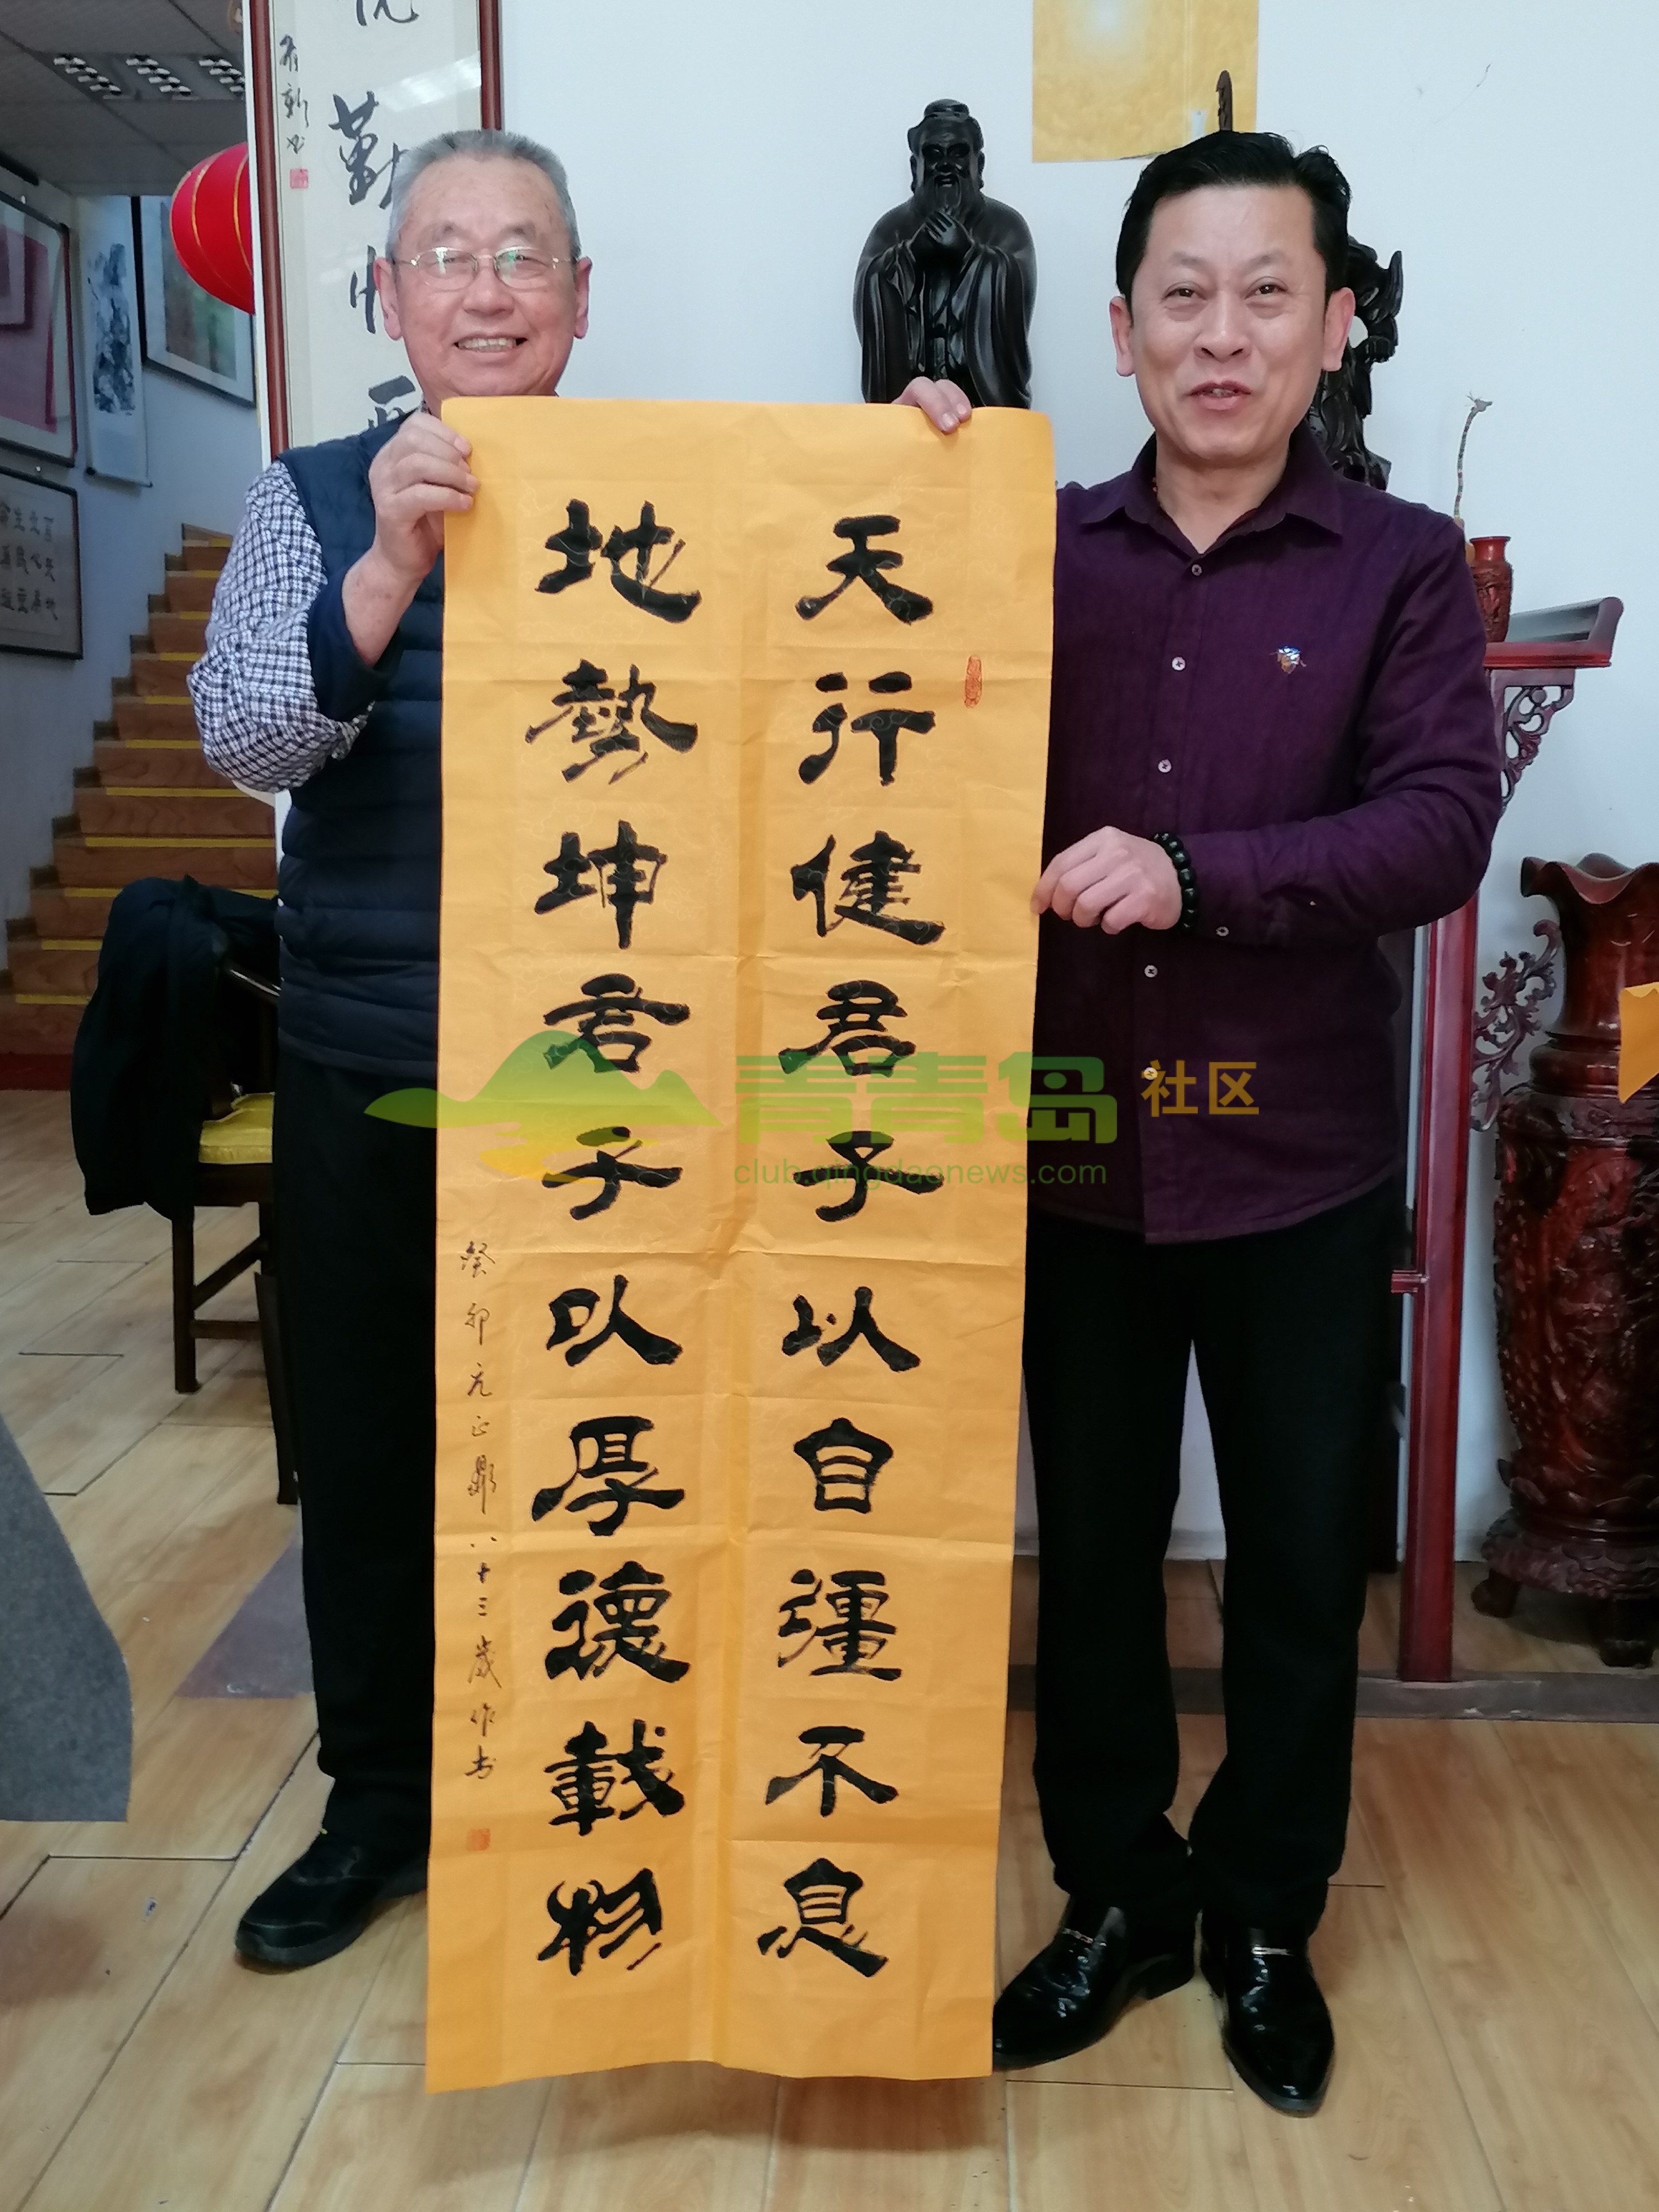 天行健君子以自彊不息
地勢坤君子以厚德載物
癸卯元正鼎八十三歲作书
勤
青青岛社区
club.qingdaonews.com